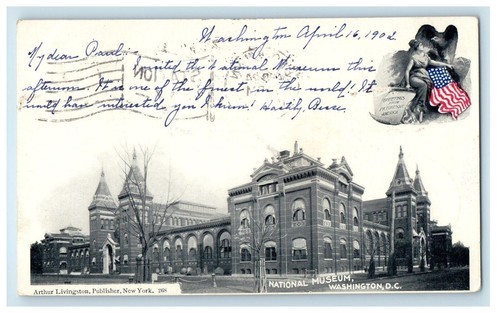 Washington April 16, 1902
My dear Paul: I visited the National Museum this
afternoon. It is one of the finest in the world! It
would have interested you I know! Hastily,
NATIONAL MUSEUM,
WASHINGTON, D.C.
Arthur Livingston, Publisher, New York. 268